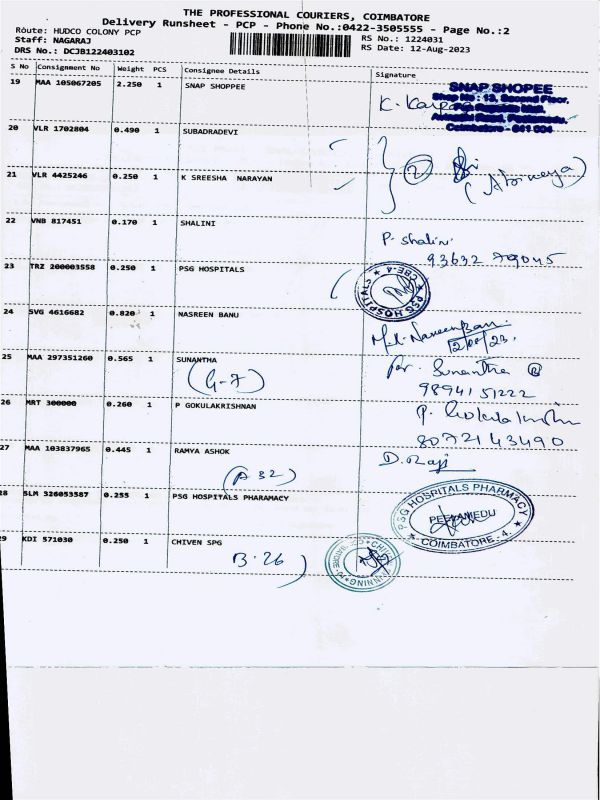 THE PROFESSIONAL COURIERS, COIMBATORE
Delivery Runsheet - PCP - Phone No.:0422-3505555 - Page No.:2
Route: HUDCO COLONY PCP
RS No.: 1224031
Staff: NAGARAJ
RS Date: 12-Aug-2023
DRS No.: DCJB122403102
S No Consignment No Weight PCS Consignee Details Signature
19 MAA 105067205 2.250 1 SNAP SHOPPEE
SNAP SHOPEE
Shop No : 13, Second Floor,
Coimbatore - 641 004
K.
20 VLR 1702804 0.490 1 SUBADRADEVI
21 VLR 4425246 0.250 1 K SREESHA NARAYAN
2
22 VNB 817451 0.170 1 SHALINI
P. Shalini
93632 79045
23 TRZ 200003558 0.250 1 PSG HOSPITALS
PSG HOSPITALS ★ CBE-4 ★
24 SVG 4616682 0.820 1 NASREEN BANU
25 MAA 297351260 0.565 1 SUNANTHA
for. Sunantha
(G-7)
98941 51222
26 MRT 300000 0.260 1 P GOKULAKRISHNAN
8072143490
27 MAA 103837965 0.445 1 RAMYA ASHOK
D. Raji
(A 32)
28 SLM 326053587 0.255 1 PSG HOSPITALS PHARAMACY
PSG HOSPITALS PHARMACY
PEELAMEDU
★ COIMBATORE - 4. ★
29 KDI 571030 0.250 1 CHIVEN SPG
B.26